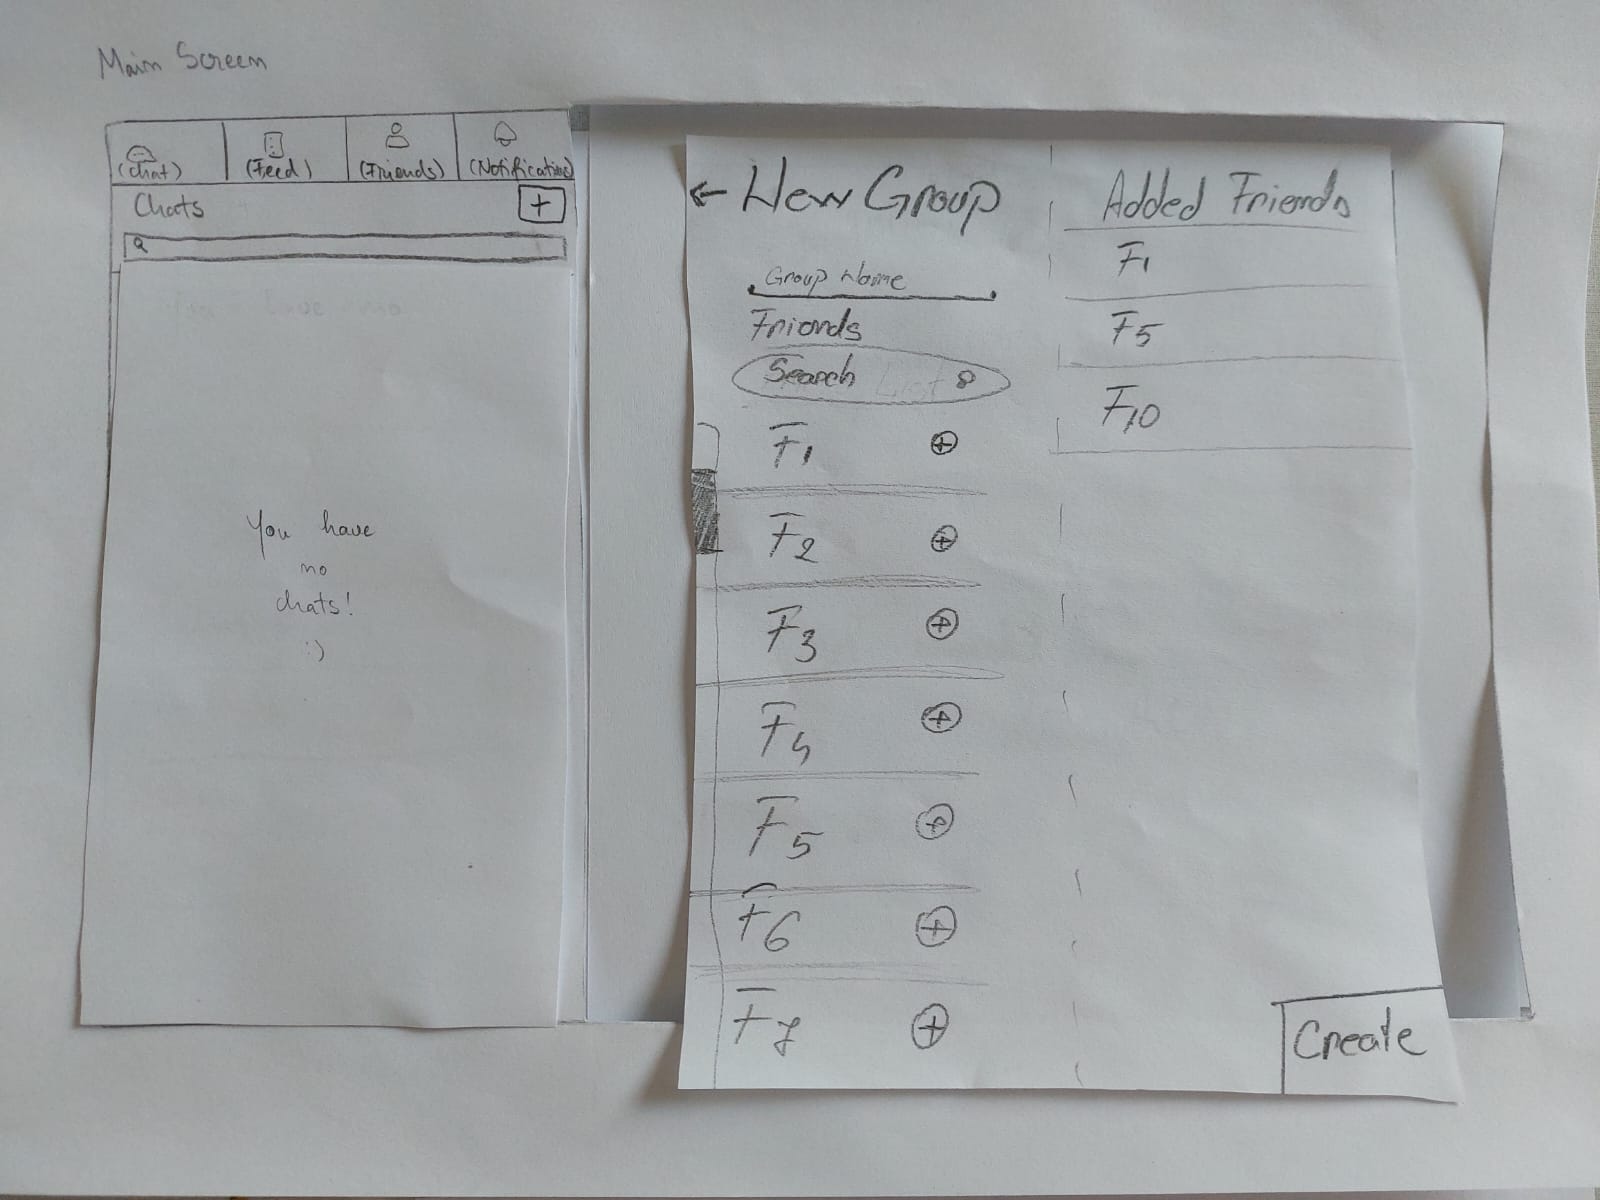 Main Screen
(Chat) (Feed) (Friends) (Notification)
Chats +
You have
no
chats!
:)
← New Group
Group Name
Friends
Search
F1 +
F2 +
F3 +
F4 +
F5 +
F6 +
F7 +
Added Friends
F1
F5
F10
Create